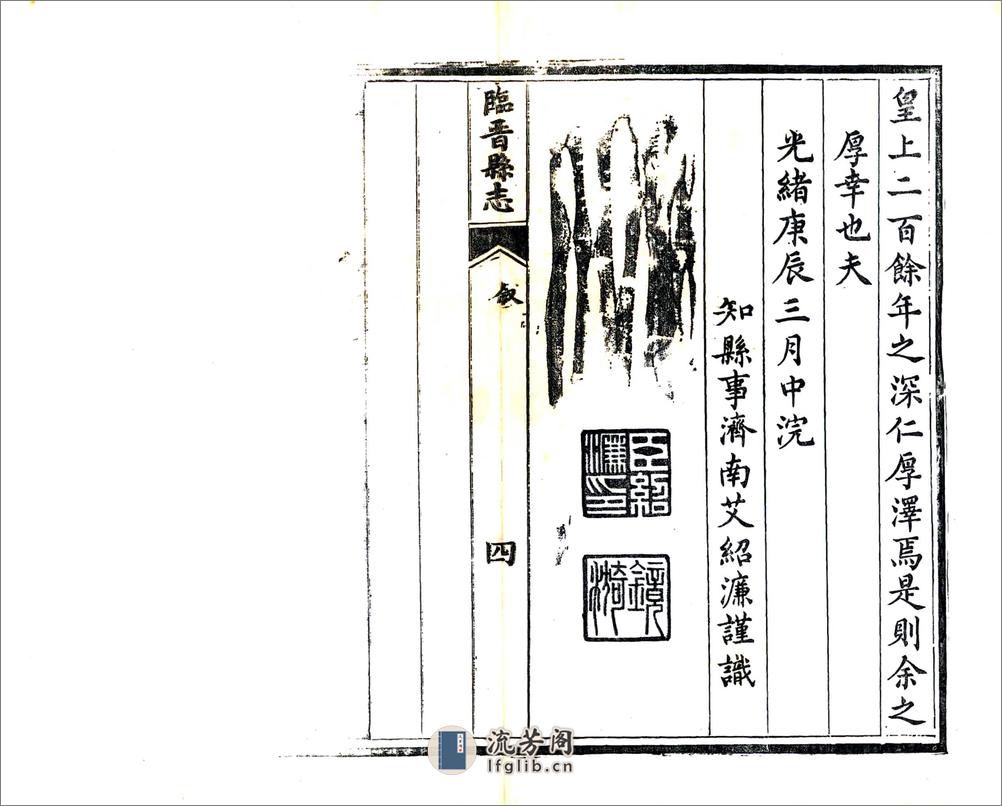 皇上二百餘年之深仁厚澤焉是則余之
厚幸也夫
光緒庚辰三月中浣
知縣事濟南艾紹濂謹識
鏡漪
臨晉縣志
敘
四
流芳阁
lfglib.cn